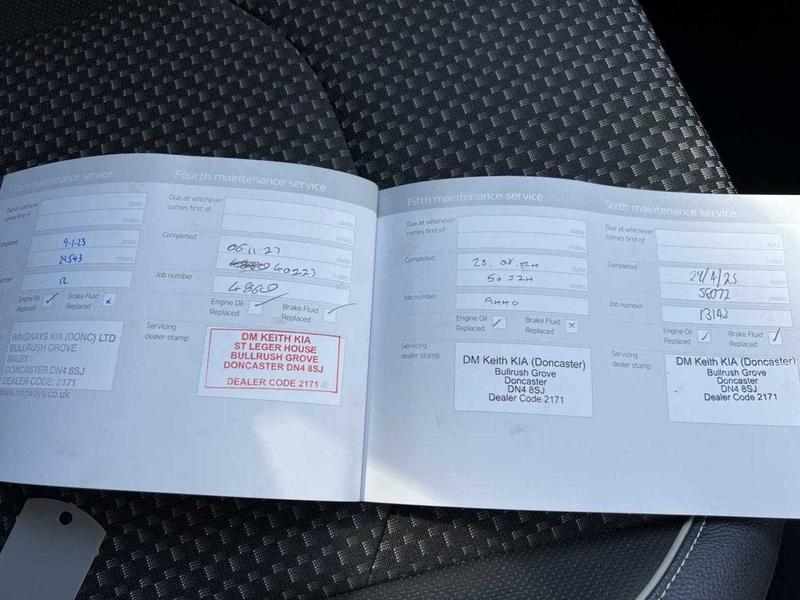 Third maintenance service
Due at whichever
comes first of
date
miles
Completed
9-1-23
date
29543
miles
number
12
Engine Oil
Replaced
Brake Fluid
Replaced
RINGWAYS KIA (DONC) LTD
BULLRUSH GROVE
BALBY
DONCASTER DN4 8SJ
DEALER CODE: 2171
www.ringways.co.uk
Fourth maintenance service
Due at whichever
comes first of
date
miles
Completed
06 11 23
date
40223
miles
Job number
4860
Engine Oil
Replaced
Brake Fluid
Replaced
Servicing
dealer stamp
DM KEITH KIA
ST LEGER HOUSE
BULLRUSH GROVE
DONCASTER DN4 8SJ
DEALER CODE 2171
Fifth maintenance service
Due at whichever
comes first of
date
miles
Completed
date
miles
Job number
Engine Oil
Replaced
Brake Fluid
Replaced
Servicing
dealer stamp
DM Keith KIA (Doncaster)
Bullrush Grove
Doncaster
DN4 8SJ
Dealer Code 2171
Sixth maintenance service
Due at whichever
comes first of
date
miles
Completed
29/4/25
date
58072
miles
Job number
13142
Engine Oil
Replaced
Brake Fluid
Replaced
Servicing
dealer stamp
DM Keith KIA (Doncaster)
Bullrush Grove
Doncaster
DN4 8SJ
Dealer Code 2171